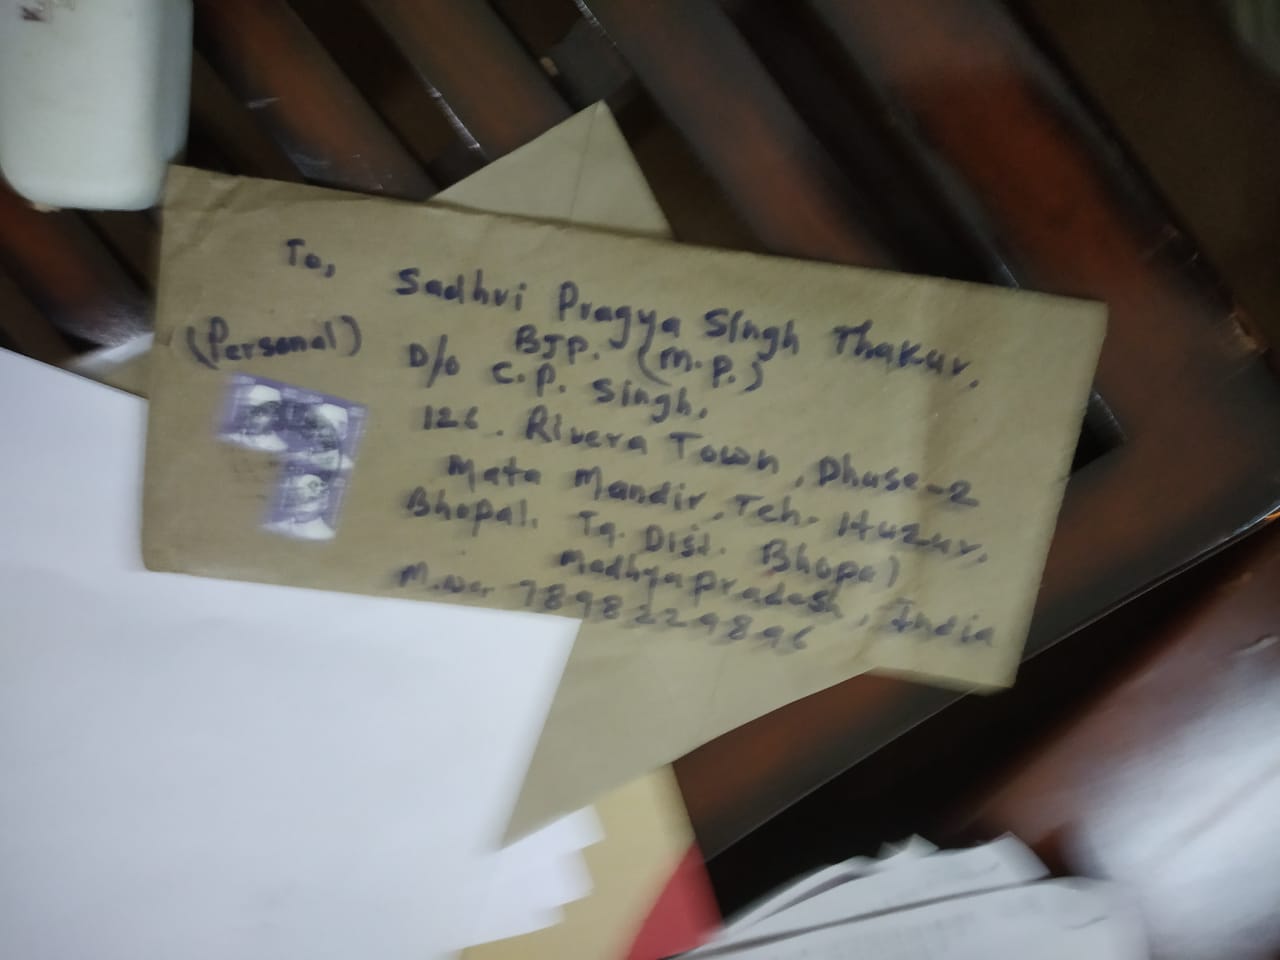 To,
Sadhvi Pragya Singh Thakur,
(Personal)
BJP. (M.P.)
D/o C.P. Singh,
126. Rivera Town, Phase-2
Mata Mandir, Teh. Huzur,
Bhopal. Tq. Dist. Bhopal
Madhyapradesh, India
M.No. 7898229896